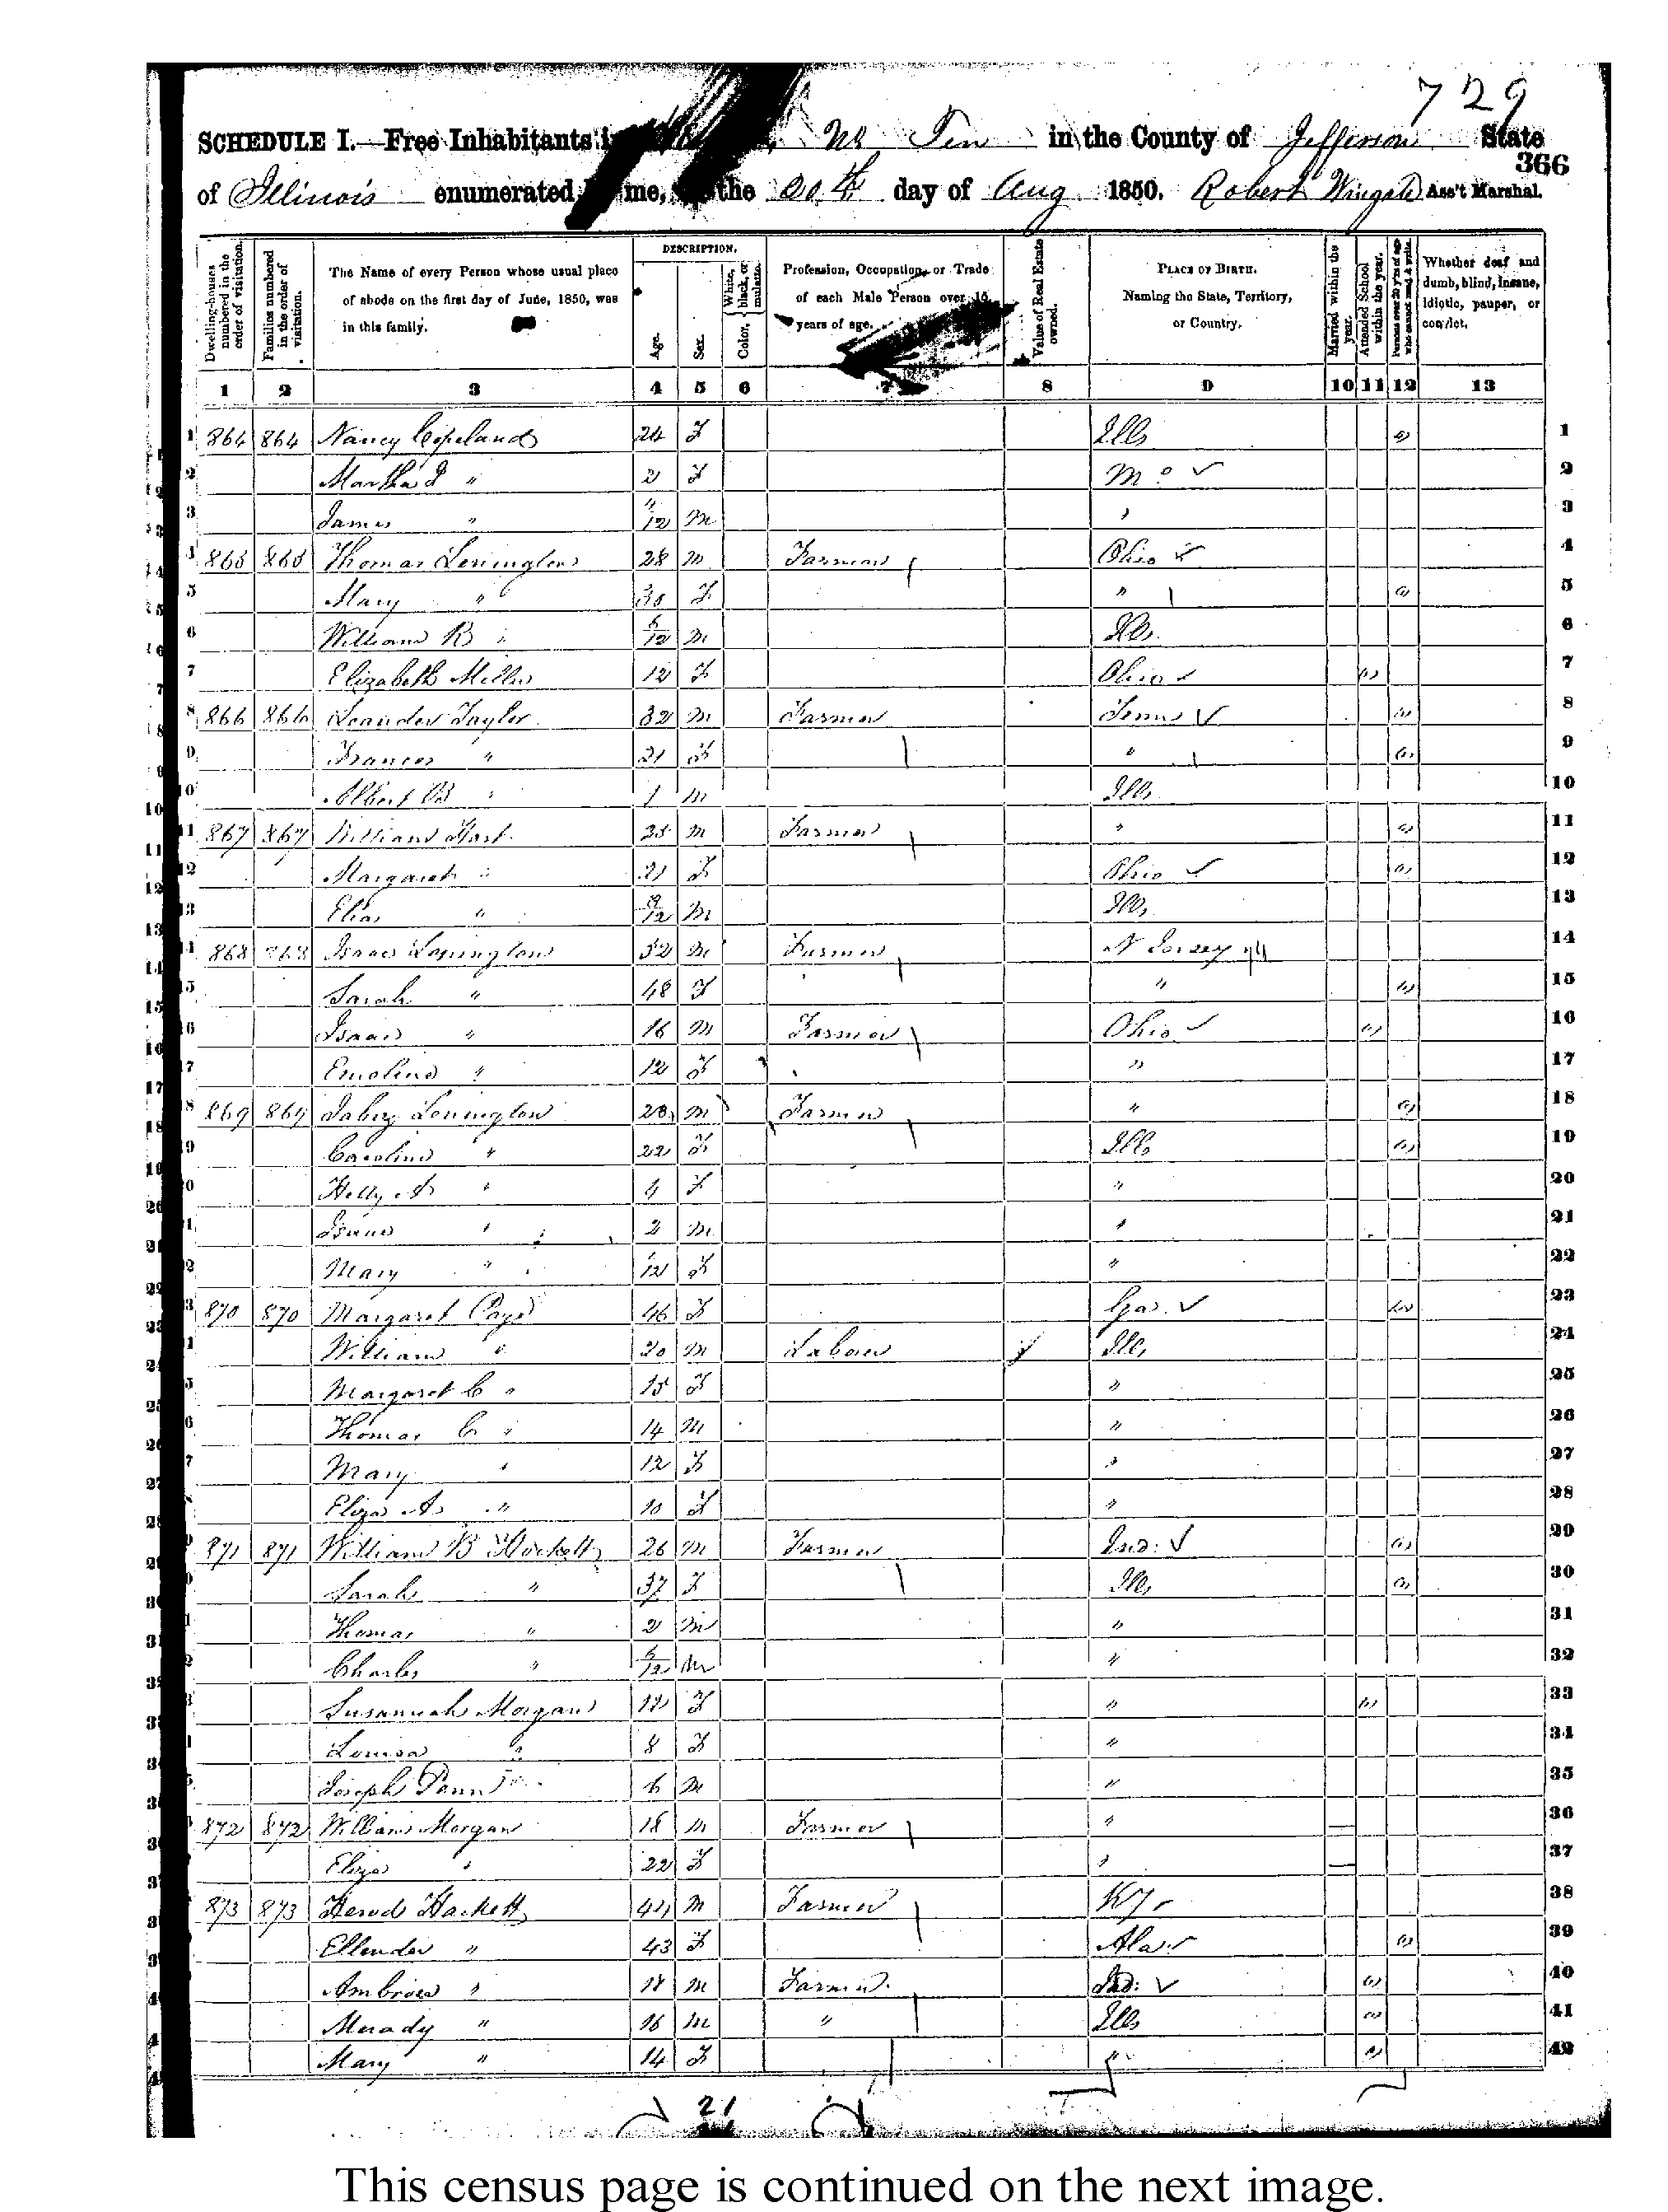 729
SCHEDULE I.—Free Inhabitants in No Ten in the County of Jefferson State
366
of Illinois enumerated by me, the 20th day of Aug 1850. Robert Wingate Ass't Marshal.
Dwelling-houses numbered in the order of visitation.
Families numbered in the order of visitation.
The Name of every Person whose usual place of abode on the first day of June, 1850, was in this family.
DESCRIPTION.
Age.
Sex.
Color, White, black, or mulatto.
Profession, Occupation, or Trade of each Male Person over 15 years of age.
Value of Real Estate owned.
PLACE OF BIRTH. Naming the State, Territory, or Country.
Married within the year.
Attended School within the year.
Persons over 20 y'rs of age who cannot read & write.
Whether deaf and dumb, blind, insane, idiotic, pauper, or convict.
1 2 3 4 5 6 7 8 9 10 11 12 13
1 864 864 Nancy Copeland 24 F Ills 1
2 Martha J " 2 F Mo 2
3 James " /12 M " 3
4 865 865 Thomas Lenington 28 M Farmer Ohio 4
5 Mary " F " 5
6 William B " 6/12 M Ills 6
7 Elizabeth Miller 12 F Ohio 7
8 866 866 Leander Taylor 32 M Farmer Tenn 8
9 Frances " 21 F " 9
10 Albert B " 1 M Ills 10
11 867 867 William 25 M Farmer " 11
12 Margaret " 21 F Ohio 12
13 Elias " 9/12 M Ills 13
14 868 868 Isaac Lenington 52 M Farmer N Jersey 14
15 Sarah " 48 F " 15
16 Isaac " 16 M Farmer Ohio 16
17 Emeline " 12 F " 17
18 869 869 Jabez Lenington 28 M Farmer " 18
19 Caroline " 22 F Ills 19
20 A " 4 F " 20
21 Isaac " 2 M " 21
22 Mary " /12 F " 22
23 870 870 Margaret Page 46 F Geo. 23
24 William " 20 M Labour Ills 24
25 Margaret C " 15 F " 25
26 Thomas C " 14 M " 26
27 Mary " 12 F " 27
28 Eliza A " 10 F " 28
29 871 871 William B Hackett 26 M Farmer Ind. 29
30 Sarah " 37 F Ills 30
31 Thomas " 2 M " 31
32 Charles " 6/12 M " 32
33 Susannah Morgan 12 F " 33
34 Louisa " 8 F " 34
35 Joseph Penn 6 M " 35
36 872 872 William Morgan 18 M Farmer " 36
37 Eliza " 22 F " 37
38 873 873 Herod Hackett M Farmer Ky 38
39 Ellender " 43 F Ala. 39
40 Ambrose " 18 M Farmer Ind. 40
41 " 16 M " Ills 41
42 Mary " 14 F " 42
21
This census page is continued on the next image.